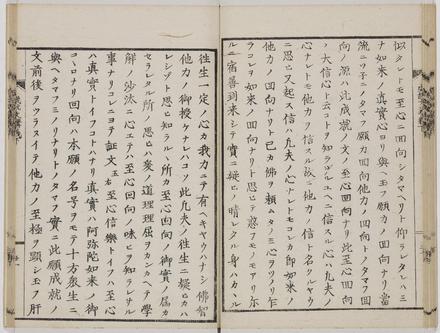 似タレトモ至心ニ回向シタマヘリト仰ラレタレハ三
ナ如来ノ真實心ヨリ與ヘ玉フ願力ノ回向ナリ當
流ニワ子ニノタマフ願力回向他力ノ回向トノタマフ回
向ノ源ハ此成就ノ文ノ至心回向ナリ此至心回向
ノ大信心ト云コトヲ知ラサルユヘニ信スル心ハ凡夫ノ
心ナレトモ他力ヲ信スル故ニ他力ノ信ト名クルヤウ
ニ思ヒ又起ス信ハ凡夫ノ心ナレトモコレカ即如来ノ
他力ノ回向ナリト已カ佛ヲ頼ムタノミ心ヲツノリ
コレヲ如来ノ回向ナリト思ヒ惑フモノモアリ尓
ルニ宿善到来シテ實ニ疑ヒノ晴レタル身ハカヽル
往生一定ノ心カ我力ニテ有ヘキヤウハナシ佛智
他力ノ御授ケナレハコソ此凡夫ノ往生ニ疑ヒカハ
レシゾト思ヒ知ラルル所カ至心回向ノ御實ノ屬カ
セラレタル所ノ思ヒハ爰ノ道理理屈ヲカンカヘテ學
解ノ沙汰ニ心エテハ至心回向ノ味ヒヲ知ラレサル
事ナリコレニヨテ證文五右至心信樂トイフハ至心
ハ真實トイフコトハナリ真實ハ阿弥陀如来ノ御
コヽロナリ回向ハ本願ノ名号ヲモテ十方衆生ニ
與ヘタマフミノリナリトノタマフ實ニ此願成就ノ
文前後ヲツラヌイテ他力ノ至極ヲ顯シ玉フ肝